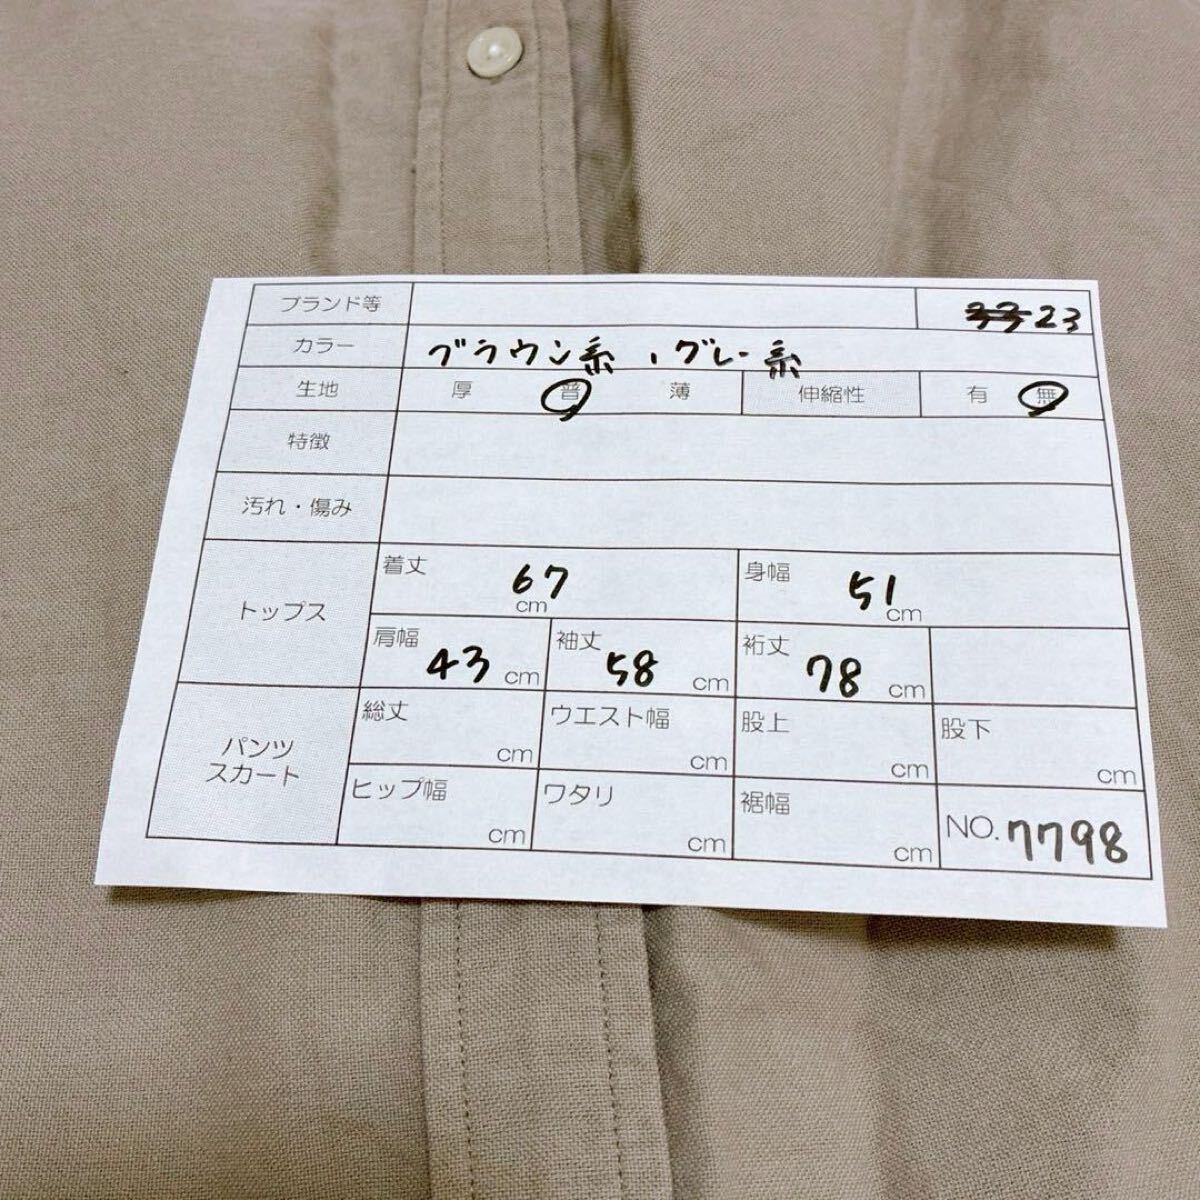 ブランド等 23
カラー ブラウン系、グレー系
生地 厚 普 薄 伸縮性 有 無
特徴
汚れ・傷み
トップス
着丈 67 cm 身幅 51 cm
肩幅 43 cm 袖丈 58 cm 裄丈 78 cm
パンツ
スカート
総丈 cm ウエスト幅 cm 股上 cm 股下 cm
ヒップ幅 cm ワタリ cm 裾幅 cm NO. 7798